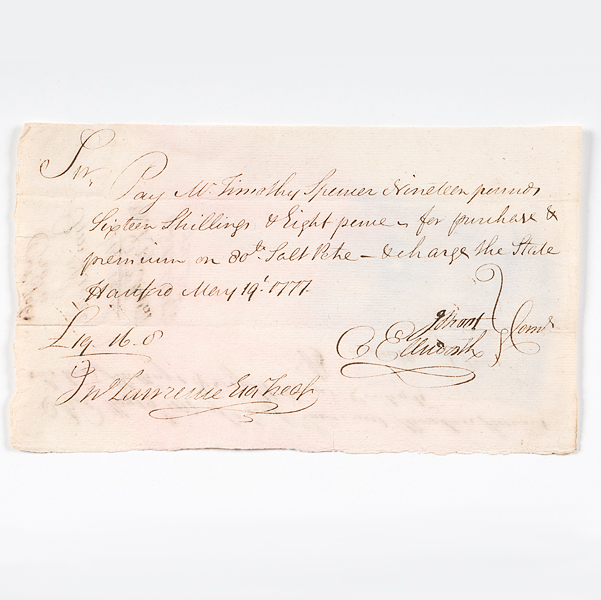 Sir,
Pay Mr. Timothy Spencer Nineteen pounds
Sixteen Shillings & Eight pence for purchase &
premium on 80 lb Salt Petre — & charge the State
Hartford May 19t. 1777
£19. 16. 8
Ellsworth } Comtt
Jno Lawrence Esq Treasr